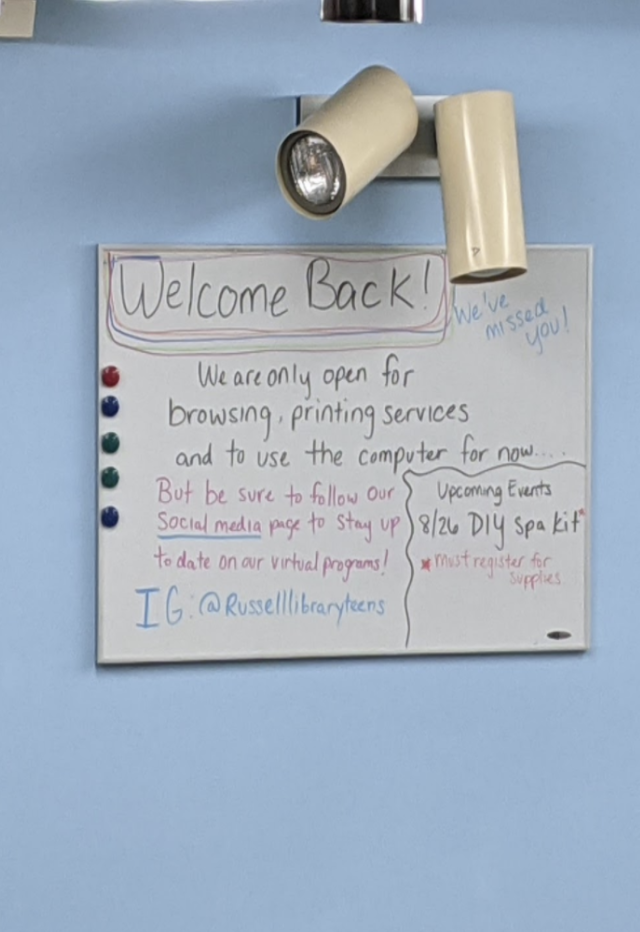 Welcome Back!
We've
missed
you!
We are only open for
browsing, printing services
and to use the computer for now....
But be sure to follow our
Social media page to stay up
to date on our virtual programs!
IG: @Russelllibraryteens
Upcoming Events
8/26 DIY Spa kit*
*must register for
supplies